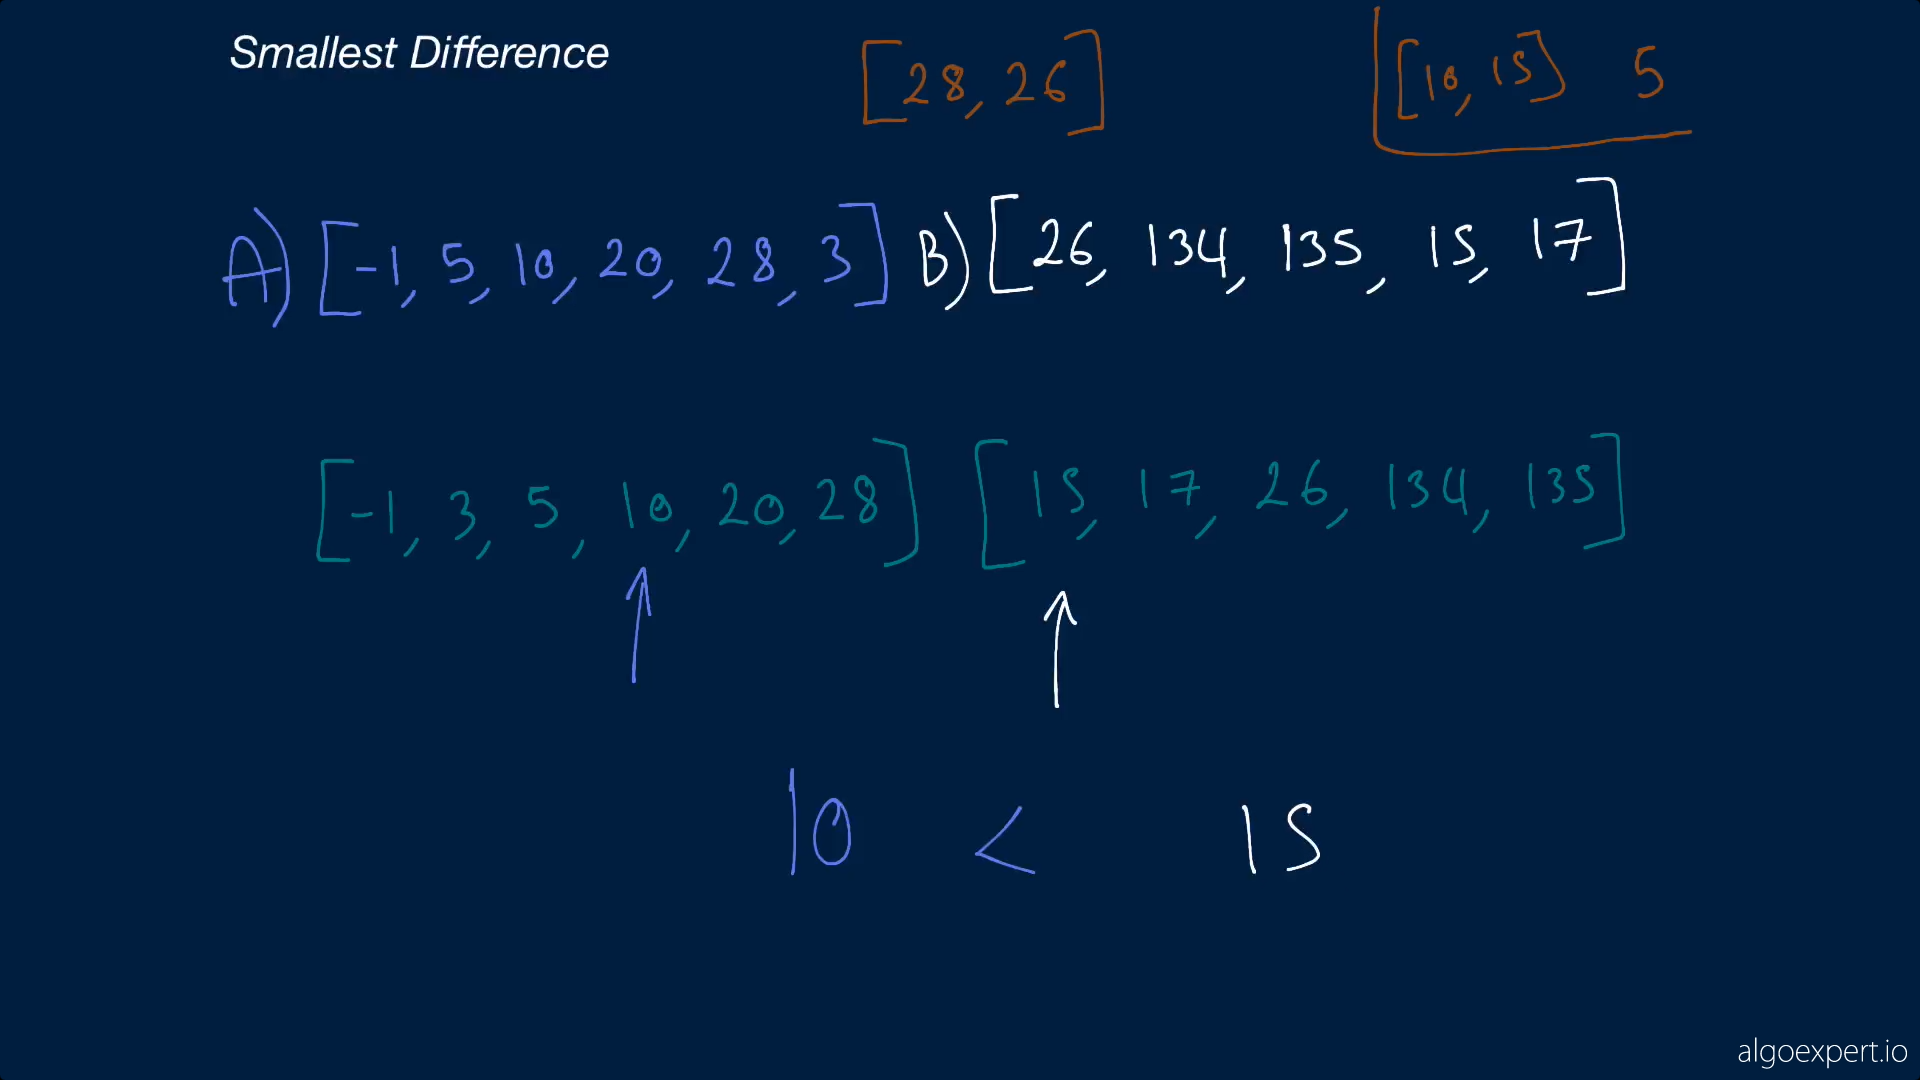 Smallest Difference
[28, 26]
[10, 15] 5
A) [-1, 5, 10, 20, 28, 3] B) [26, 134, 135, 15, 17]
[-1, 3, 5, 10, 20, 28] [15, 17, 26, 134, 135]
10 < 15
algoexpert.io